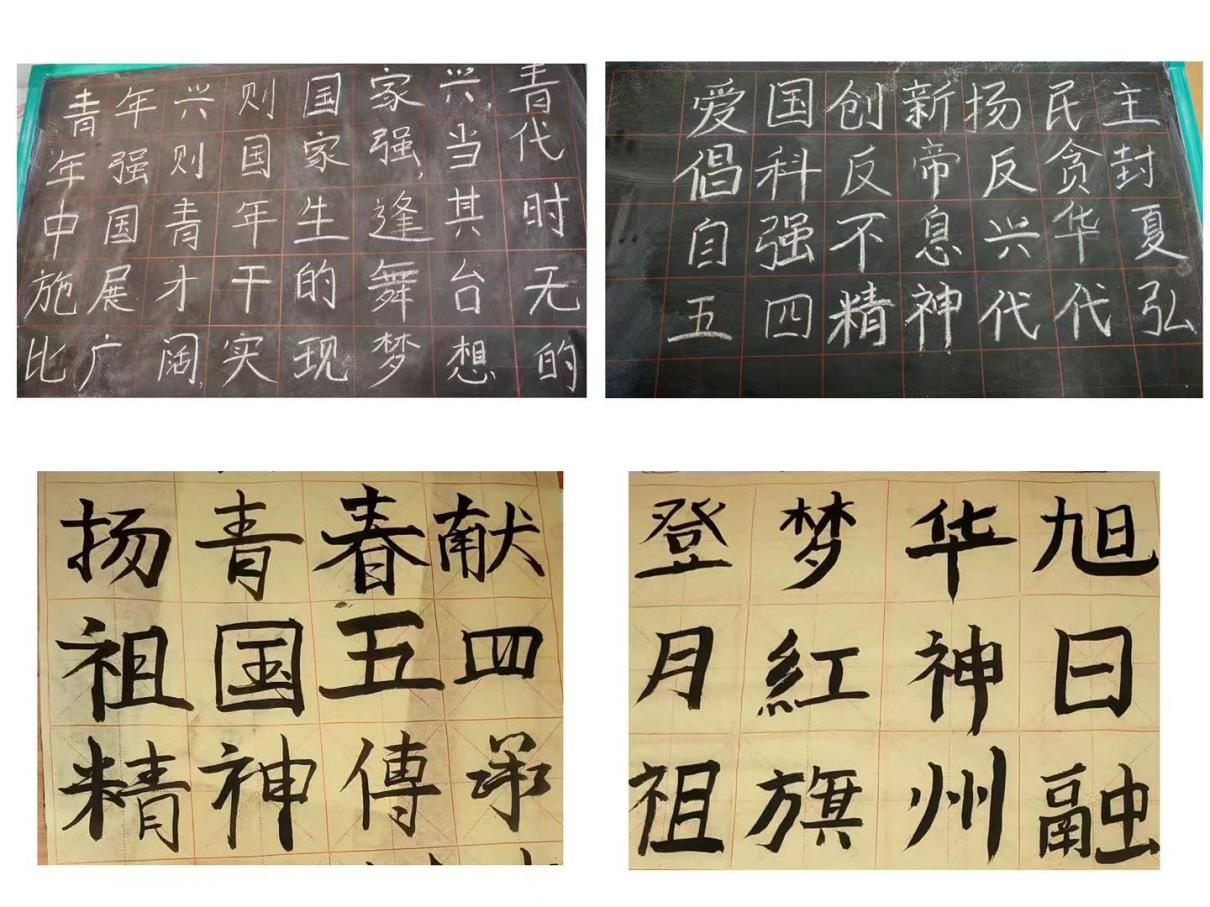 青年兴则国家兴,青
年强则国家强,当代
中国青年生逢其时
施展才干的舞台无
比广阔,实现梦想的
爱国创新扬民主
倡科反帝反贪封
自强不息兴华夏
五四精神代代弘
扬青春献
祖国五四
精神傳承
旭日融
华神州
梦紅旗
登月祖